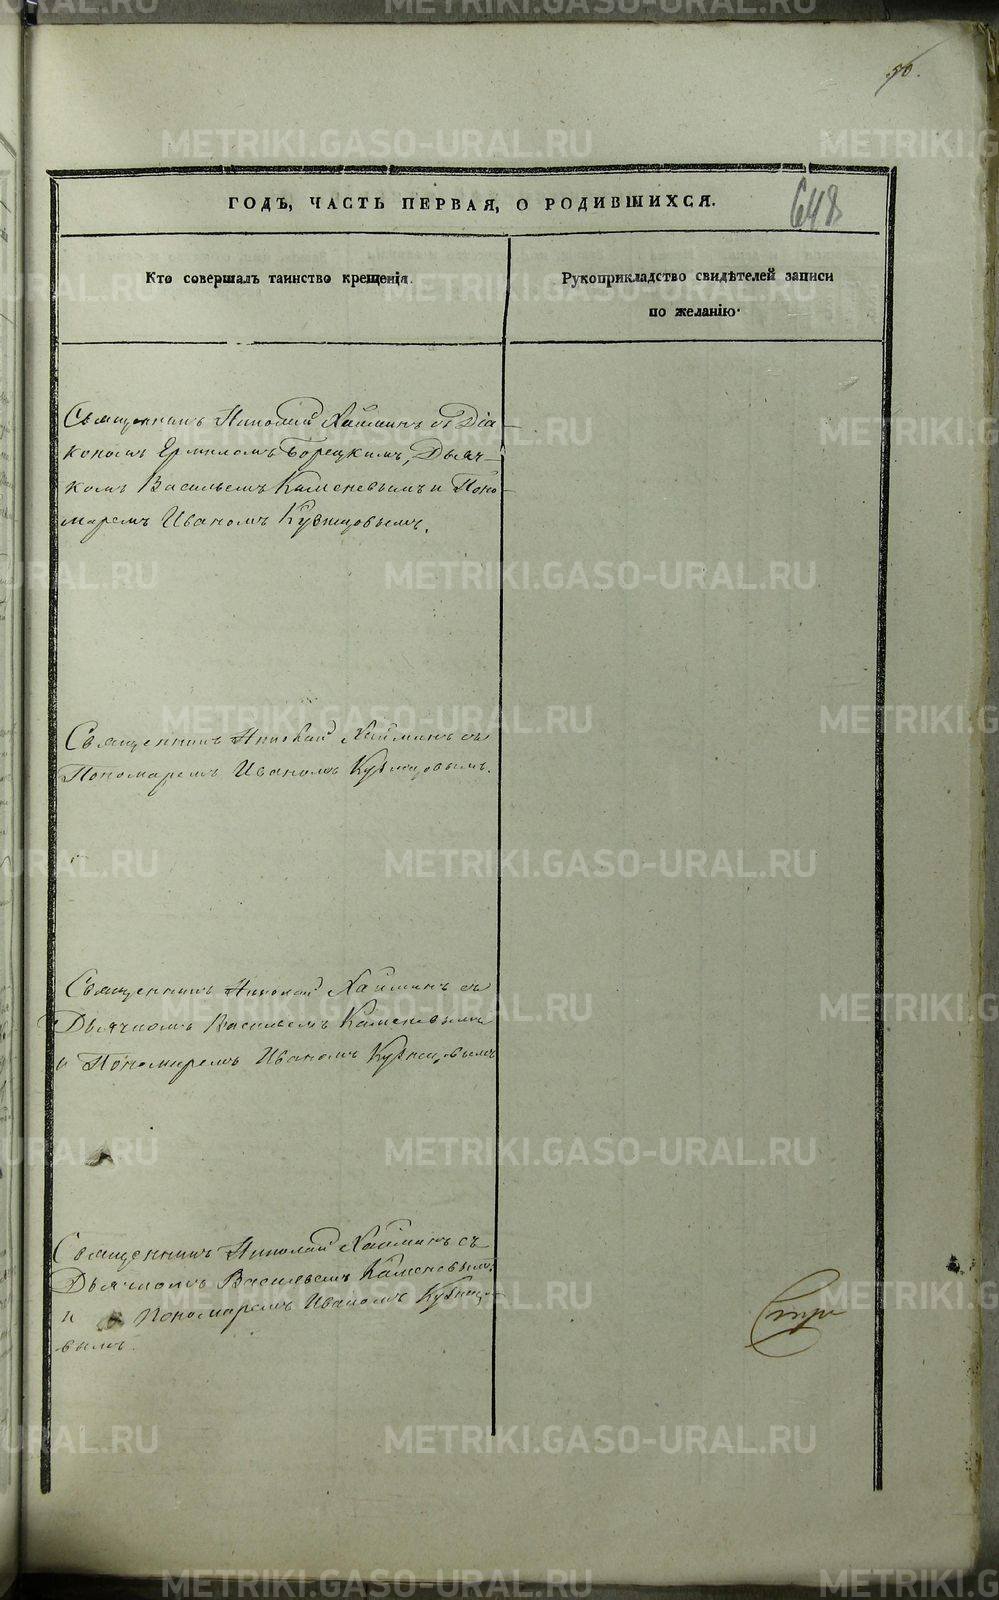 50.
648
ГОДЪ, ЧАСТЬ ПЕРВАЯ, О РОДИВШИХСЯ.
Кто совершалъ таинство крещенія.
Рукоприкладство свидѣтелей записи
по желанію.
Священникъ Николай Хайминъ съ Діа-
кономъ Ермиломъ Борецкимъ, Дьяч-
комъ Васильемъ Каменевымъ и Поно-
маремъ Иваномъ Кузнецовымъ.
Священникъ Николай Хайминъ съ
Пономаремъ Иваномъ Кузнецовымъ.
Священникъ Николай Хайминъ съ
Дьячкомъ Васильемъ Каменевымъ
и Пономаремъ Иваномъ Кузнецовымъ
Священникъ Николай Хайминъ съ
Дьячкомъ Васильемъ Каменевымъ
и Пономаремъ Иваномъ Кузнецо-
вымъ.
METRIKI.GASO-URAL.RU